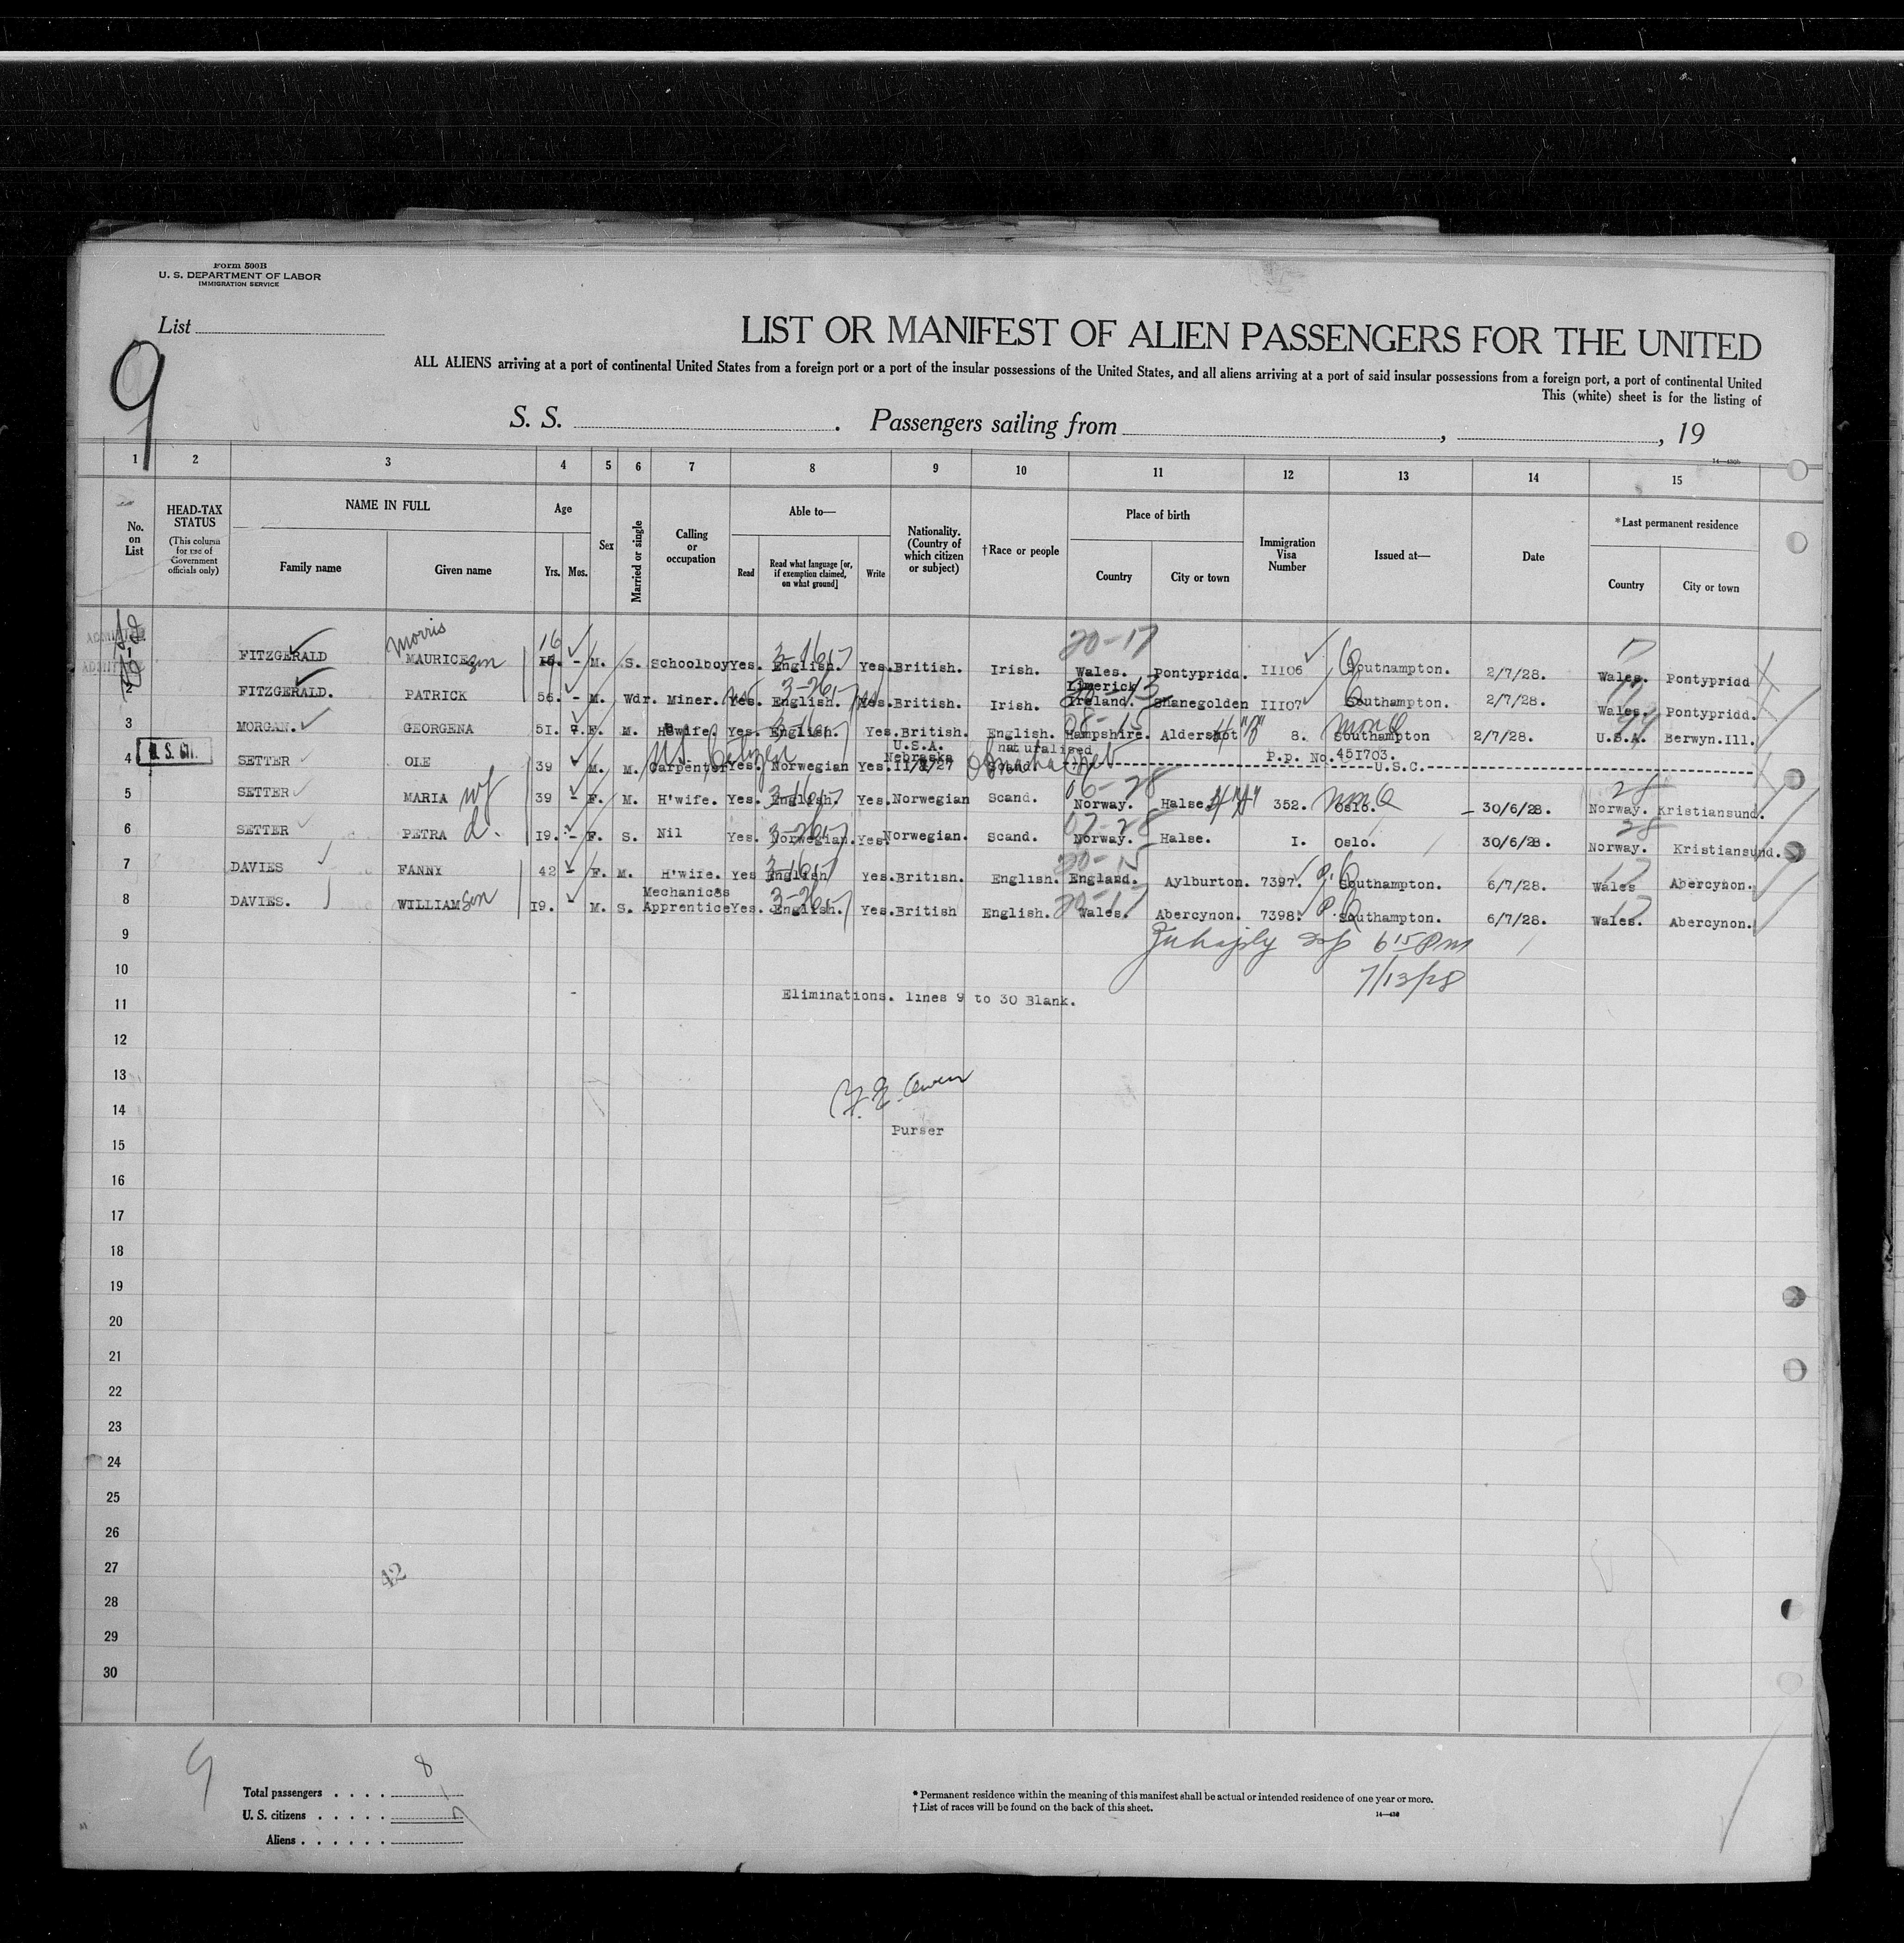 Form 500B
U. S. DEPARTMENT OF LABOR
IMMIGRATION SERVICE
List
9
LIST OR MANIFEST OF ALIEN PASSENGERS FOR THE UNITED
ALL ALIENS arriving at a port of continental United States from a foreign port or a port of the insular possessions of the United States, and all aliens arriving at a port of said insular possessions from a foreign port, a port of continental United
This (white) sheet is for the listing of
S. S. . Passengers sailing from , , 19
1 2 3 4 5 6 7 8 9 10 11 12 13 14 15
No. on List
HEAD-TAX STATUS
(This column for use of Government officials only)
NAME IN FULL
Family name
Given name
Age
Yrs. Mos.
Sex
Married or single
Calling or occupation
Able to—
Read
Read what language [or, if exemption claimed, on what ground]
Write
Nationality. (Country of which citizen or subject)
†Race or people
Place of birth
Country
City or town
Immigration Visa Number
Issued at—
Date
*Last permanent residence
Country
City or town
Morris 16 3-1615 20-17 17
1 FITZGERALD MAURICE son - M. S. Schoolboy Yes. English. Yes. British. Irish. Wales. Pontypridd. II106 Southampton. 2/7/28. Wales. Pontypridd
2 FITZGERALD. PATRICK 56. - M. Wdr. Miner. Yes. English. Yes. British. Irish. Limerick Ireland. Shanegolden II107 Southampton. 2/7/28. Wales. Pontypridd.
3 MORGAN. GEORGENA 51. F. M. H'wife. Yes. English. Yes. British. English. Hampshire. Aldershot 8. Southampton 2/7/28. U.S.A. Berwyn.Ill.
U.S.A. naturalised
4 SETTER OLE 39 M. M. Carpenter Yes. Norwegian Yes. Nebraska P.p. No. 451703. U.S.C.
US Citizen
5 SETTER MARIA wf 39 - F. M. H'wife. Yes. English. Yes. Norwegian Scand. Norway. Halse. 352. Oslo. 30/6/28. Norway. Kristiansund.
6 SETTER PETRA d. 19. - F. S. Nil Yes. Norwegian. Yes. Norwegian. Scand. Norway. Halse. I. Oslo. 30/6/28. Norway. Kristiansund.
7 DAVIES FANNY 42 - F. M. H'wife. Yes English Yes. British. English. England. Aylburton. 7397. Southampton. 6/7/28. Wales Abercynon.
8 DAVIES. WILLIAM son 19. M. S. Mechanics Apprentice Yes. English. Yes. British English. Wales. Abercynon. 7398. Southampton. 6/7/28. Wales. Abercynon.
9
6 15 Pm
10
7/13/28
11 Eliminations. lines 9 to 30 Blank.
12
13
14
15 Purser
16
17
18
19
20
21
22
23
24
25
26
27
42
28
29
30
9
Total passengers . . . . 8
U. S. citizens . . . . . 1
Aliens . . . . . . 7
* Permanent residence within the meaning of this manifest shall be actual or intended residence of one year or more.
† List of races will be found on the back of this sheet.